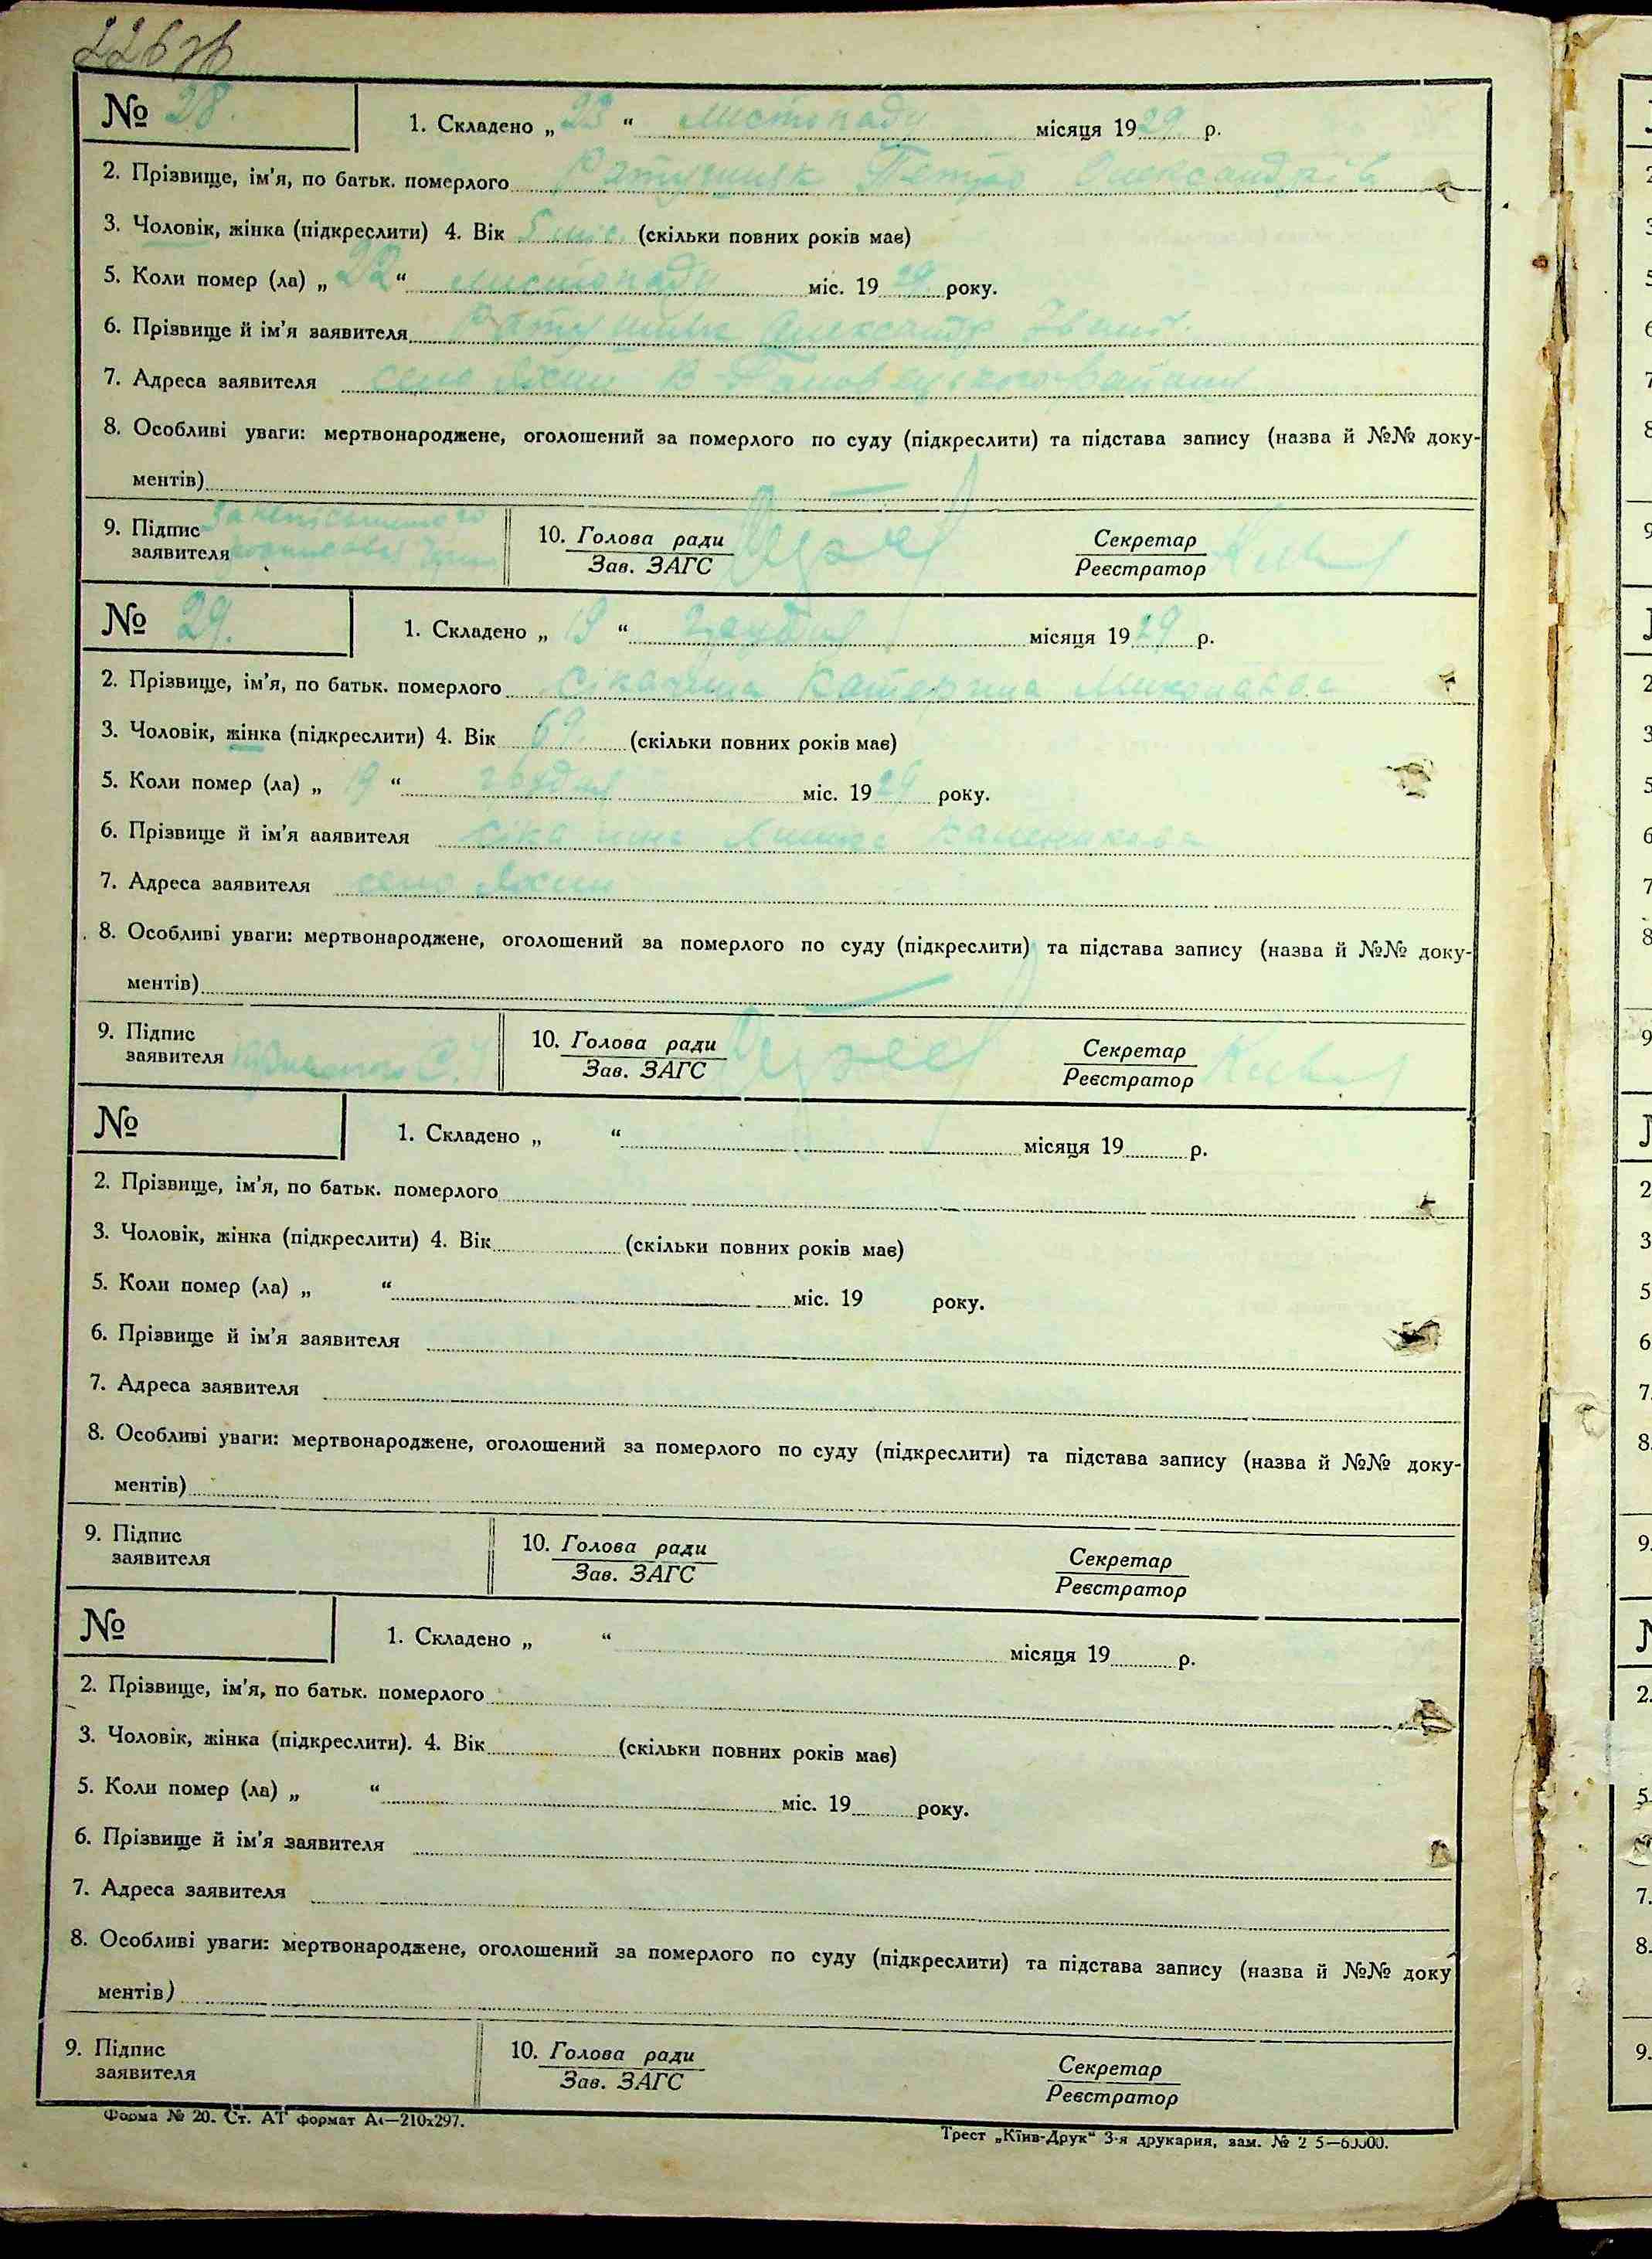 226 зв
№ 28. 1. Складено „ 23 “ листопаду місяця 1929 р.
2. Прізвище, ім'я, по батьк. померлого Ратушняк Петро Олександрів
3. Чоловік, жінка (підкреслити) 4. Вік 5 міс. (скільки повних років має)
5. Коли помер (ла) „ 22 “ листопаду міс. 1929 року.
6. Прізвище й ім'я заявителя Ратушняк Олександр
7. Адреса заявителя село
8. Особливі уваги: мертвонароджене, оголошений за померлого по суду (підкреслити) та підстава запису (назва й №№ доку-
ментів)
9. Підпис
заявителя
10. Голова ради
Зав. ЗАГС
Секретар
Реєстратор
№ 29. 1. Складено „ 19 “ грудня місяця 1929 р.
2. Прізвище, ім'я, по батьк. померлого Катерина
3. Чоловік, жінка (підкреслити) 4. Вік 69 (скільки повних років має)
5. Коли помер (ла) „ 19 “ грудня міс. 1929 року.
6. Прізвище й ім'я аявителя
7. Адреса заявителя село
8. Особливі уваги: мертвонароджене, оголошений за померлого по суду (підкреслити) та підстава запису (назва й №№ доку-
ментів)
9. Підпис
заявителя
10. Голова ради
Зав. ЗАГС
Секретар
Реєстратор
№ 1. Складено „ “ місяця 19 р.
2. Прізвище, ім'я, по батьк. померлого
3. Чоловік, жінка (підкреслити) 4. Вік (скільки повних років має)
5. Коли помер (ла) „ “ міс. 19 року.
6. Прізвище й ім'я заявителя
7. Адреса заявителя
8. Особливі уваги: мертвонароджене, оголошений за померлого по суду (підкреслити) та підстава запису (назва й №№ доку-
ментів)
9. Підпис
заявителя
10. Голова ради
Зав. ЗАГС
Секретар
Реєстратор
№ 1. Складено „ “ місяця 19 р.
2. Прізвище, ім'я, по батьк. померлого
3. Чоловік, жінка (підкреслити). 4. Вік (скільки повних років має)
5. Коли помер (ла) „ “ міс. 19 року.
6. Прізвище й ім'я заявителя
7. Адреса заявителя
8. Особливі уваги: мертвонароджене, оголошений за померлого по суду (підкреслити) та підстава запису (назва й №№ доку
ментів)
9. Підпис
заявителя
10. Голова ради
Зав. ЗАГС
Секретар
Реєстратор
Форма № 20. Ст. АТ формат А4—210x297.
Трест „Київ-Друк“ 3-я друкарня, зам. №